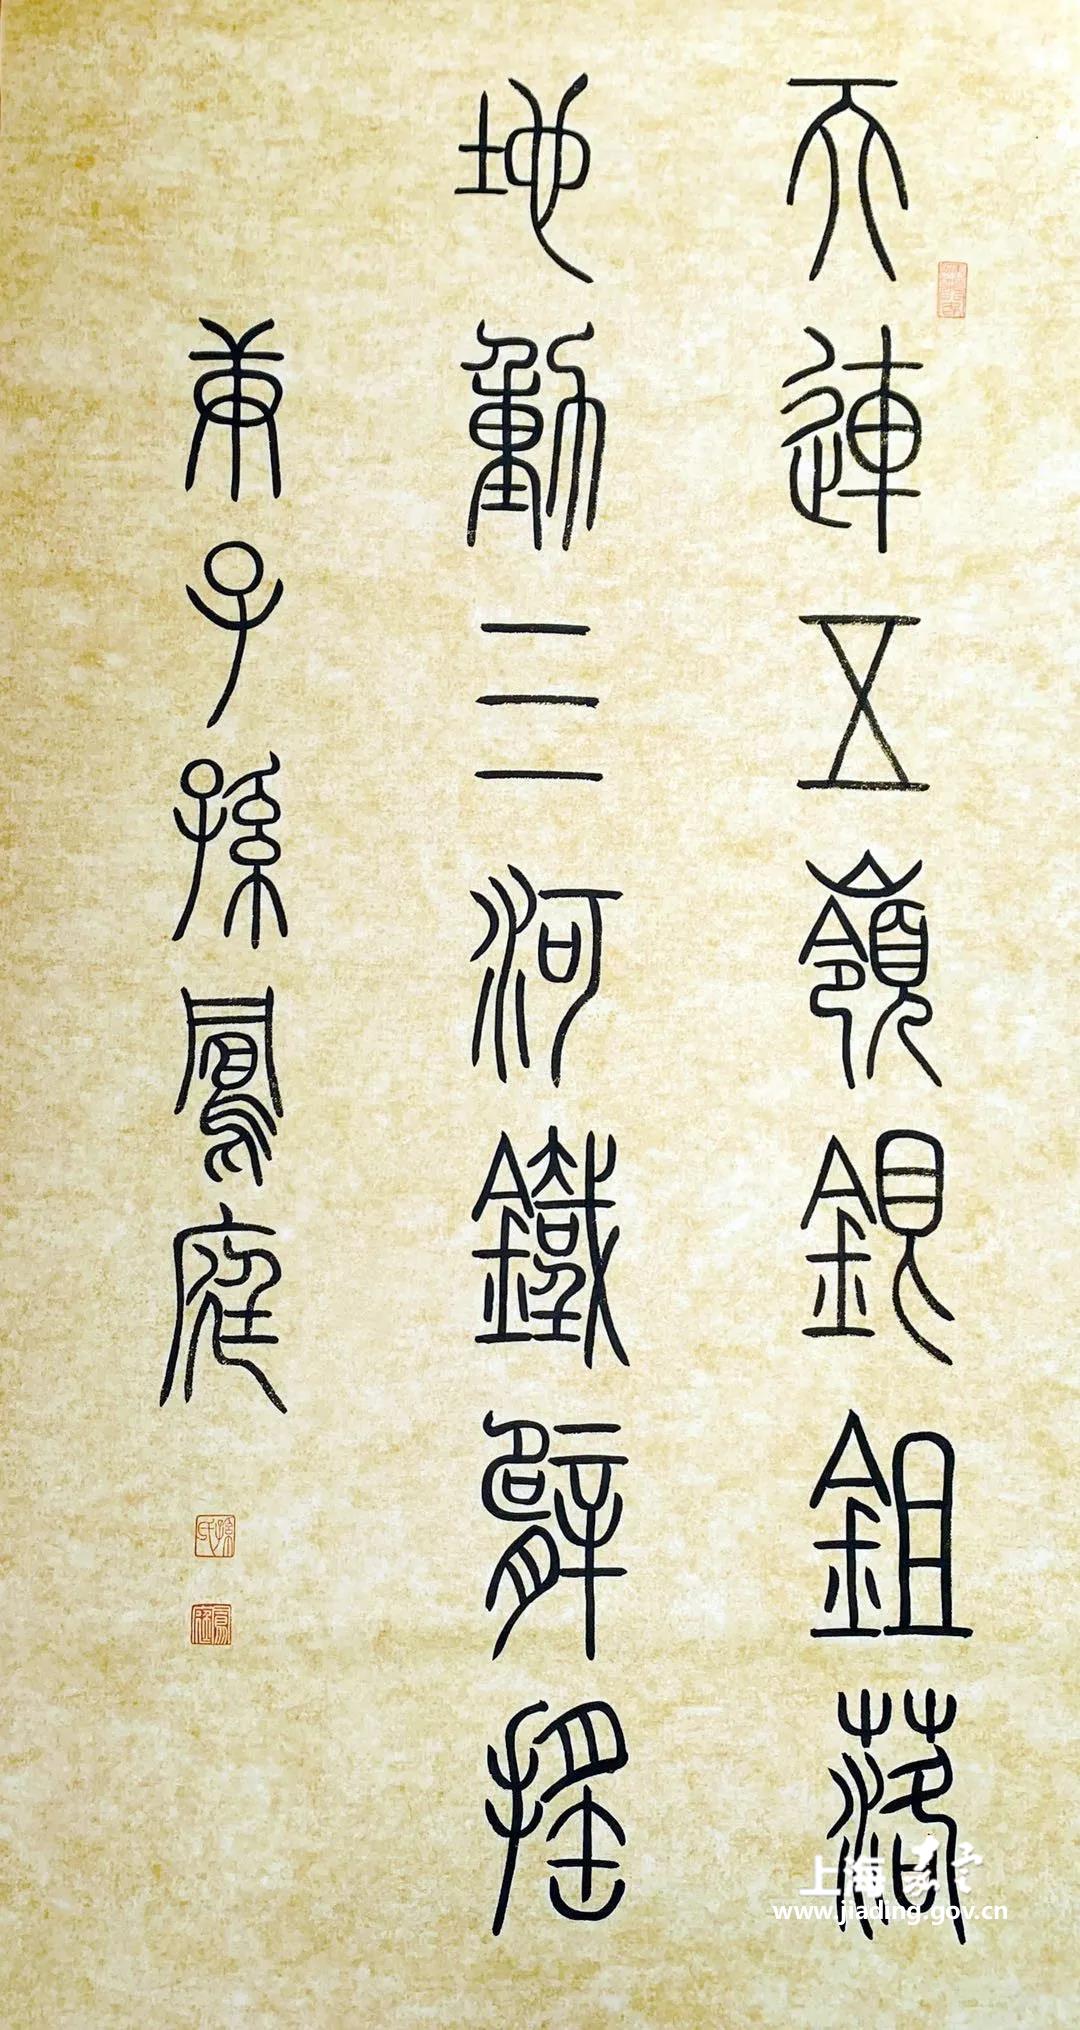 天連五嶺銀鉏落
地動三河鐵臂搖
庚子孫鳳庭
孫氏
鳳庭
上海嘉定
www.jiading.gov.cn